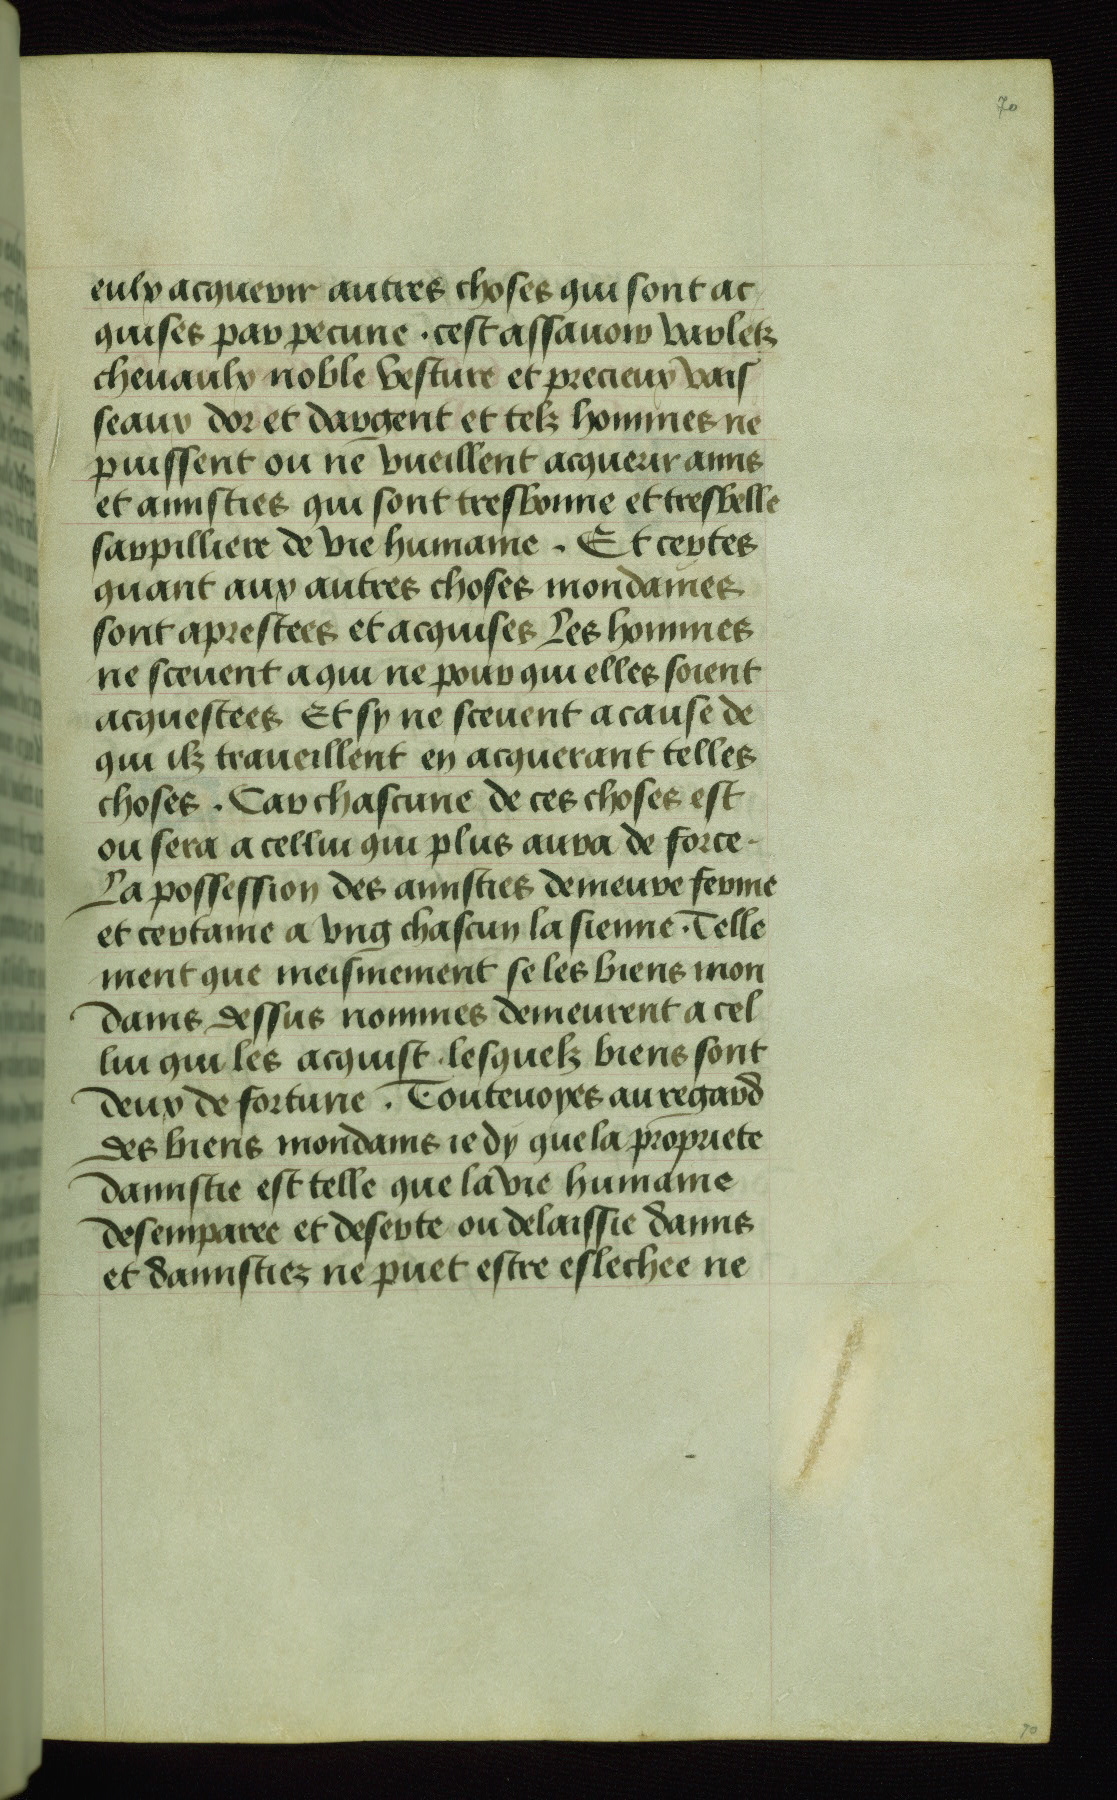 70
eulx acquerir autres choses qui sont ac
quises par pecune . cest assauoir varletz
cheuaulx noble vesture et precieux vais
seaux dor et dargent et telz hommes ne
puissent ou ne vueillent acquerir amis
et amisties qui sont tresbonne et tresbelle
sarpilliere de vie humaine . Et certes
quant aux autres choses mondaines
sont aprestees et acquises Les hommes
ne sceuent a qui ne pour qui elles soient
acquestees Et sy ne sceuent a cause de
qui ilz traueillent en acquerant telles
choses . Car chascune de ces choses est
ou sera a cellui qui plus aura de force .
La possession des amisties demeure ferme
et certaine a vng chascun la sienne . Telle
ment que meismement se les biens mon
dains dessus nommes demeurent a cel
lui qui les acquist . lesquelz biens sont
deux de fortune . Touteuoyes au regard
des biens mondains ie dy que la propriete
damistie est telle que la vie humaine
desemparee et deserte ou delaissie damis
et damistiez ne puet estre eslechee ne
70